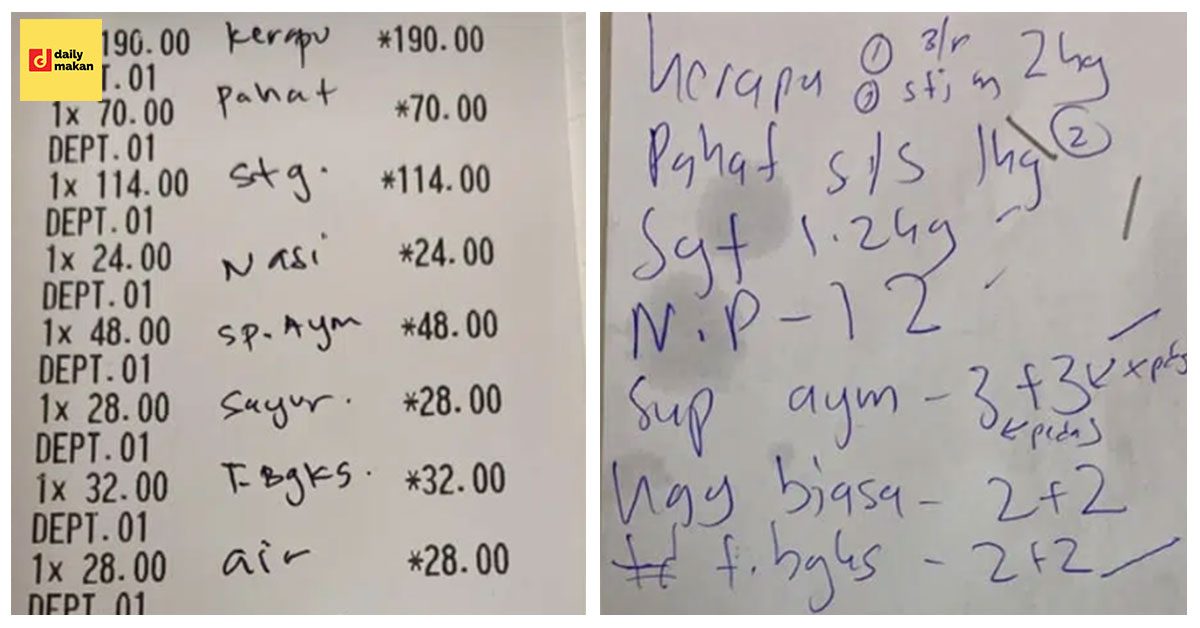 daily
makan
190.00 kerapu *190.00
T.01
1x 70.00 pahat *70.00
DEPT.01
1x 114.00 stg. *114.00
DEPT.01
1x 24.00 Nasi *24.00
DEPT.01
1x 48.00 sp. Aym *48.00
DEPT.01
1x 28.00 sayur. *28.00
DEPT.01
1x 32.00 T. Bgks. *32.00
DEPT.01
1x 28.00 air *28.00
DEPT.01
kerapu ① 3/r 2kg
② stim
Pahat s/s 1kg ②
Sgt 1.2kg
N.P - 12
Sup aym - 3+3 xpds
pedas
biasa - 2+2
t. bgks - 2+2